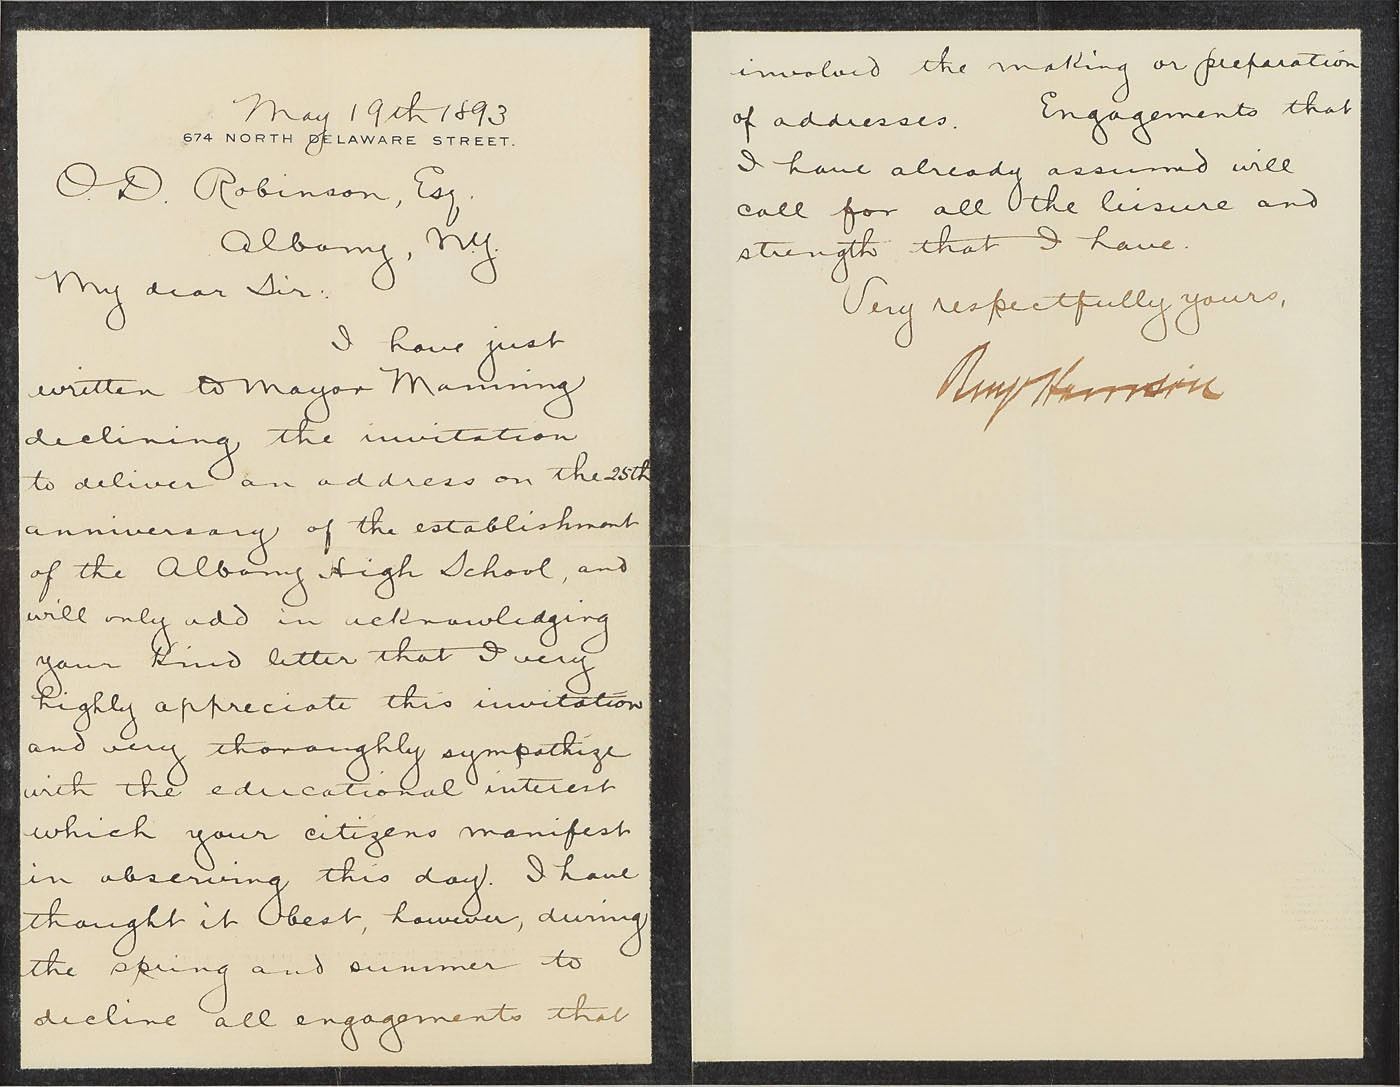 May 19th 1893
674 NORTH DELAWARE STREET.
O. D. Robinson, Esq.
Albany, N.Y.
My dear Sir:
I have just
written to Mayor Manning
declining the invitation
to deliver an address on the 25th
anniversary of the establishment
of the Albany High School, and
will only add in acknowledging
your kind letter that I very
highly appreciate this invitation
and very thoroughly sympathize
with the educational interest
which your citizens manifest
in observing this day. I have
thought it best, however, during
the spring and summer to
decline all engagements that
involved the making or preparation
of addresses. Engagements that
I have already assumed will
call for all the leisure and
strength that I have.
Very respectfully yours,
Benj Harrison